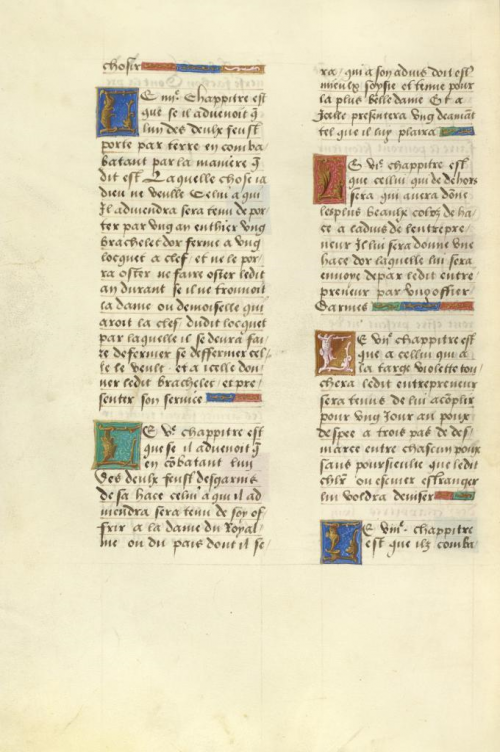 chosir
Le iiiie. Chappitre est
que se il advenoit q̃
lun des deulx feust
porte par terre en comba
batant par la maniere q̃
dit est Laquelle chose ia
dieu ne veulle Celui a qui
Il adviendra sera tenu de por
ter par ung an enthier ung
brachelet dor ferme a ung
locquet a clef et ne le por
ra oster ne faire oster ledit
an durant se il ne trouvoit
la dame ou damoiselle qui
aroit la clef dudit locquet
par laquelle il se devra fai
re defermer se deffermer cel
le le veult et a icelle don
ner ledit brachelet et pre
senter son service
Le ve. chappitre est
que se il advenoit q̃
en cõbatant lun
des deulx feust desgarnis
de sa hace celui a qui il ad
viendra sera tenu de soy of
frir a la dame du Royal
me ou du pais dont il se
ra qui a son advis doit estr̃
mieulx soysie et tenue pour
la plus belle dame Et a
Icelle presentera ung deamant
tel que il luy plaira
Le vie. chappitre est
que cellui qui de dehors
sera qui avera dõne
les plus beaulx colpz de ha
ce a ladvis de lentrepre
neur Il lui sera donne une
hace dor laquelle lui sera
envoye de par ledit entre
preneur par ung offier
darmes
Le viie. chappitre est
que a cellui qui a
la targe violette tou
chera ledit entrepreneur
sera tenus de lui acõplir
pour ung Jour au poux
despee a trois pas de des
marce entre chascun poux
sans poursieulte que ledit
chlr̃ ou escuier estrangier
lui voldra deviser
Le viiie. chappitre
est que ilz comba